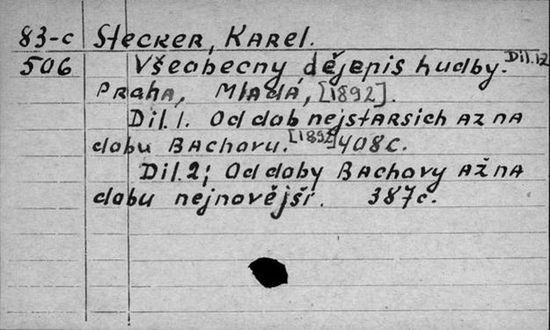 83-c Stecker, Karel.
506 Všeobecny dějepis hudby. Dil. 1,2
Praha, Mladá, [1892].
Dil. 1. Od dob nejstarsich az na
dobu Bachovu. [1892] 408c.
Dil. 2; Od doby Bachovy až na
dobu nejnovější. 387c.